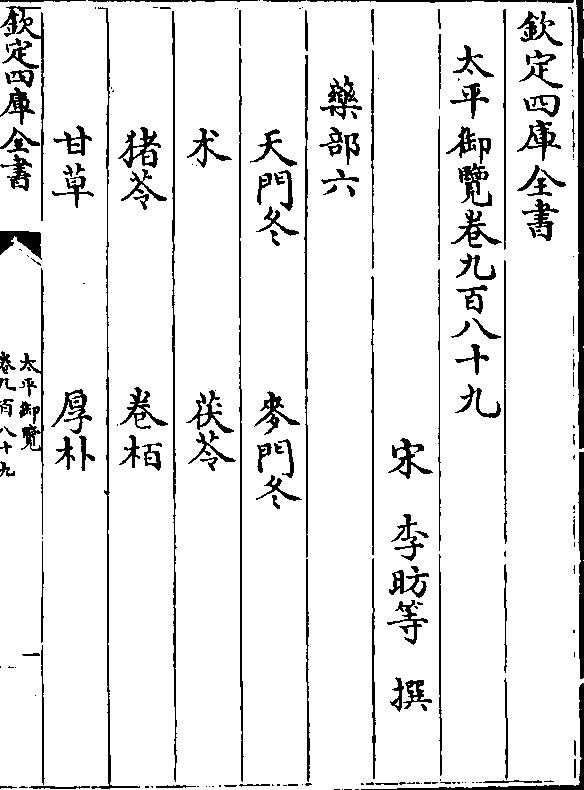 欽定四庫全書
太平御覽卷九百八十九
宋 李昉等 撰
藥部六
天門冬 麥門冬
术 茯苓
猪苓 卷栢
甘草 厚朴
欽定四庫全書
太平御覽
卷九百八十九
一